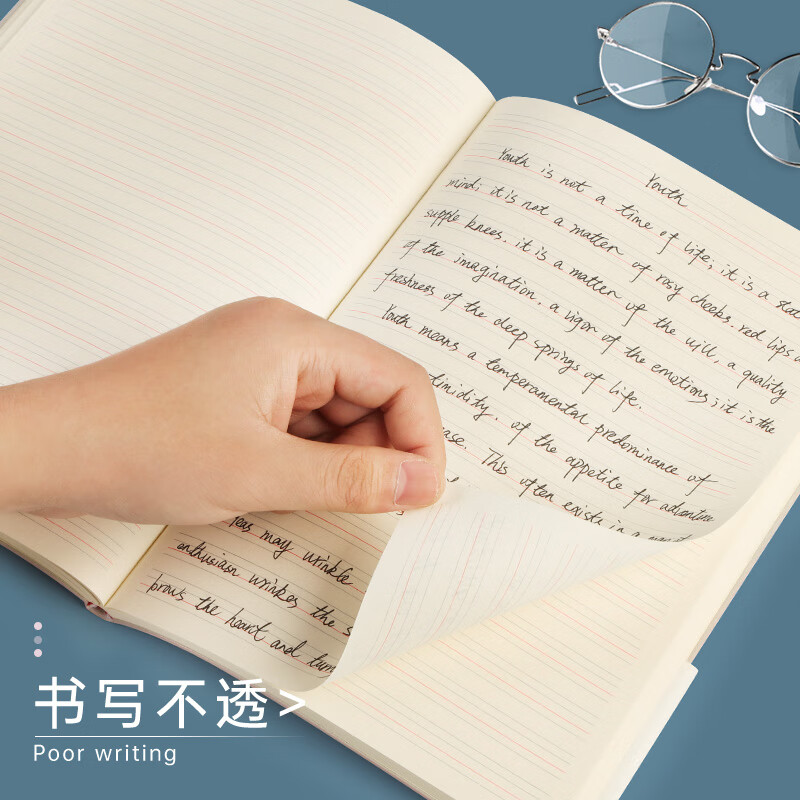 Youth
Youth is not a time of life; it is a stat
mind; it is not a matter of rosy cheeks. red lips a
supple knees. it is a matter of the will, a quality
of the imagination. a vigor of the emotions; it is the
freshness of the deep springs of life.
Youth means a temperamental predominance of
timidity. of the appetite for adventure
ase. This often exists in a
Years may wrinkle
enthusiasm wrinkes the s
brows the heart and turn
书写不透>
Poor writing